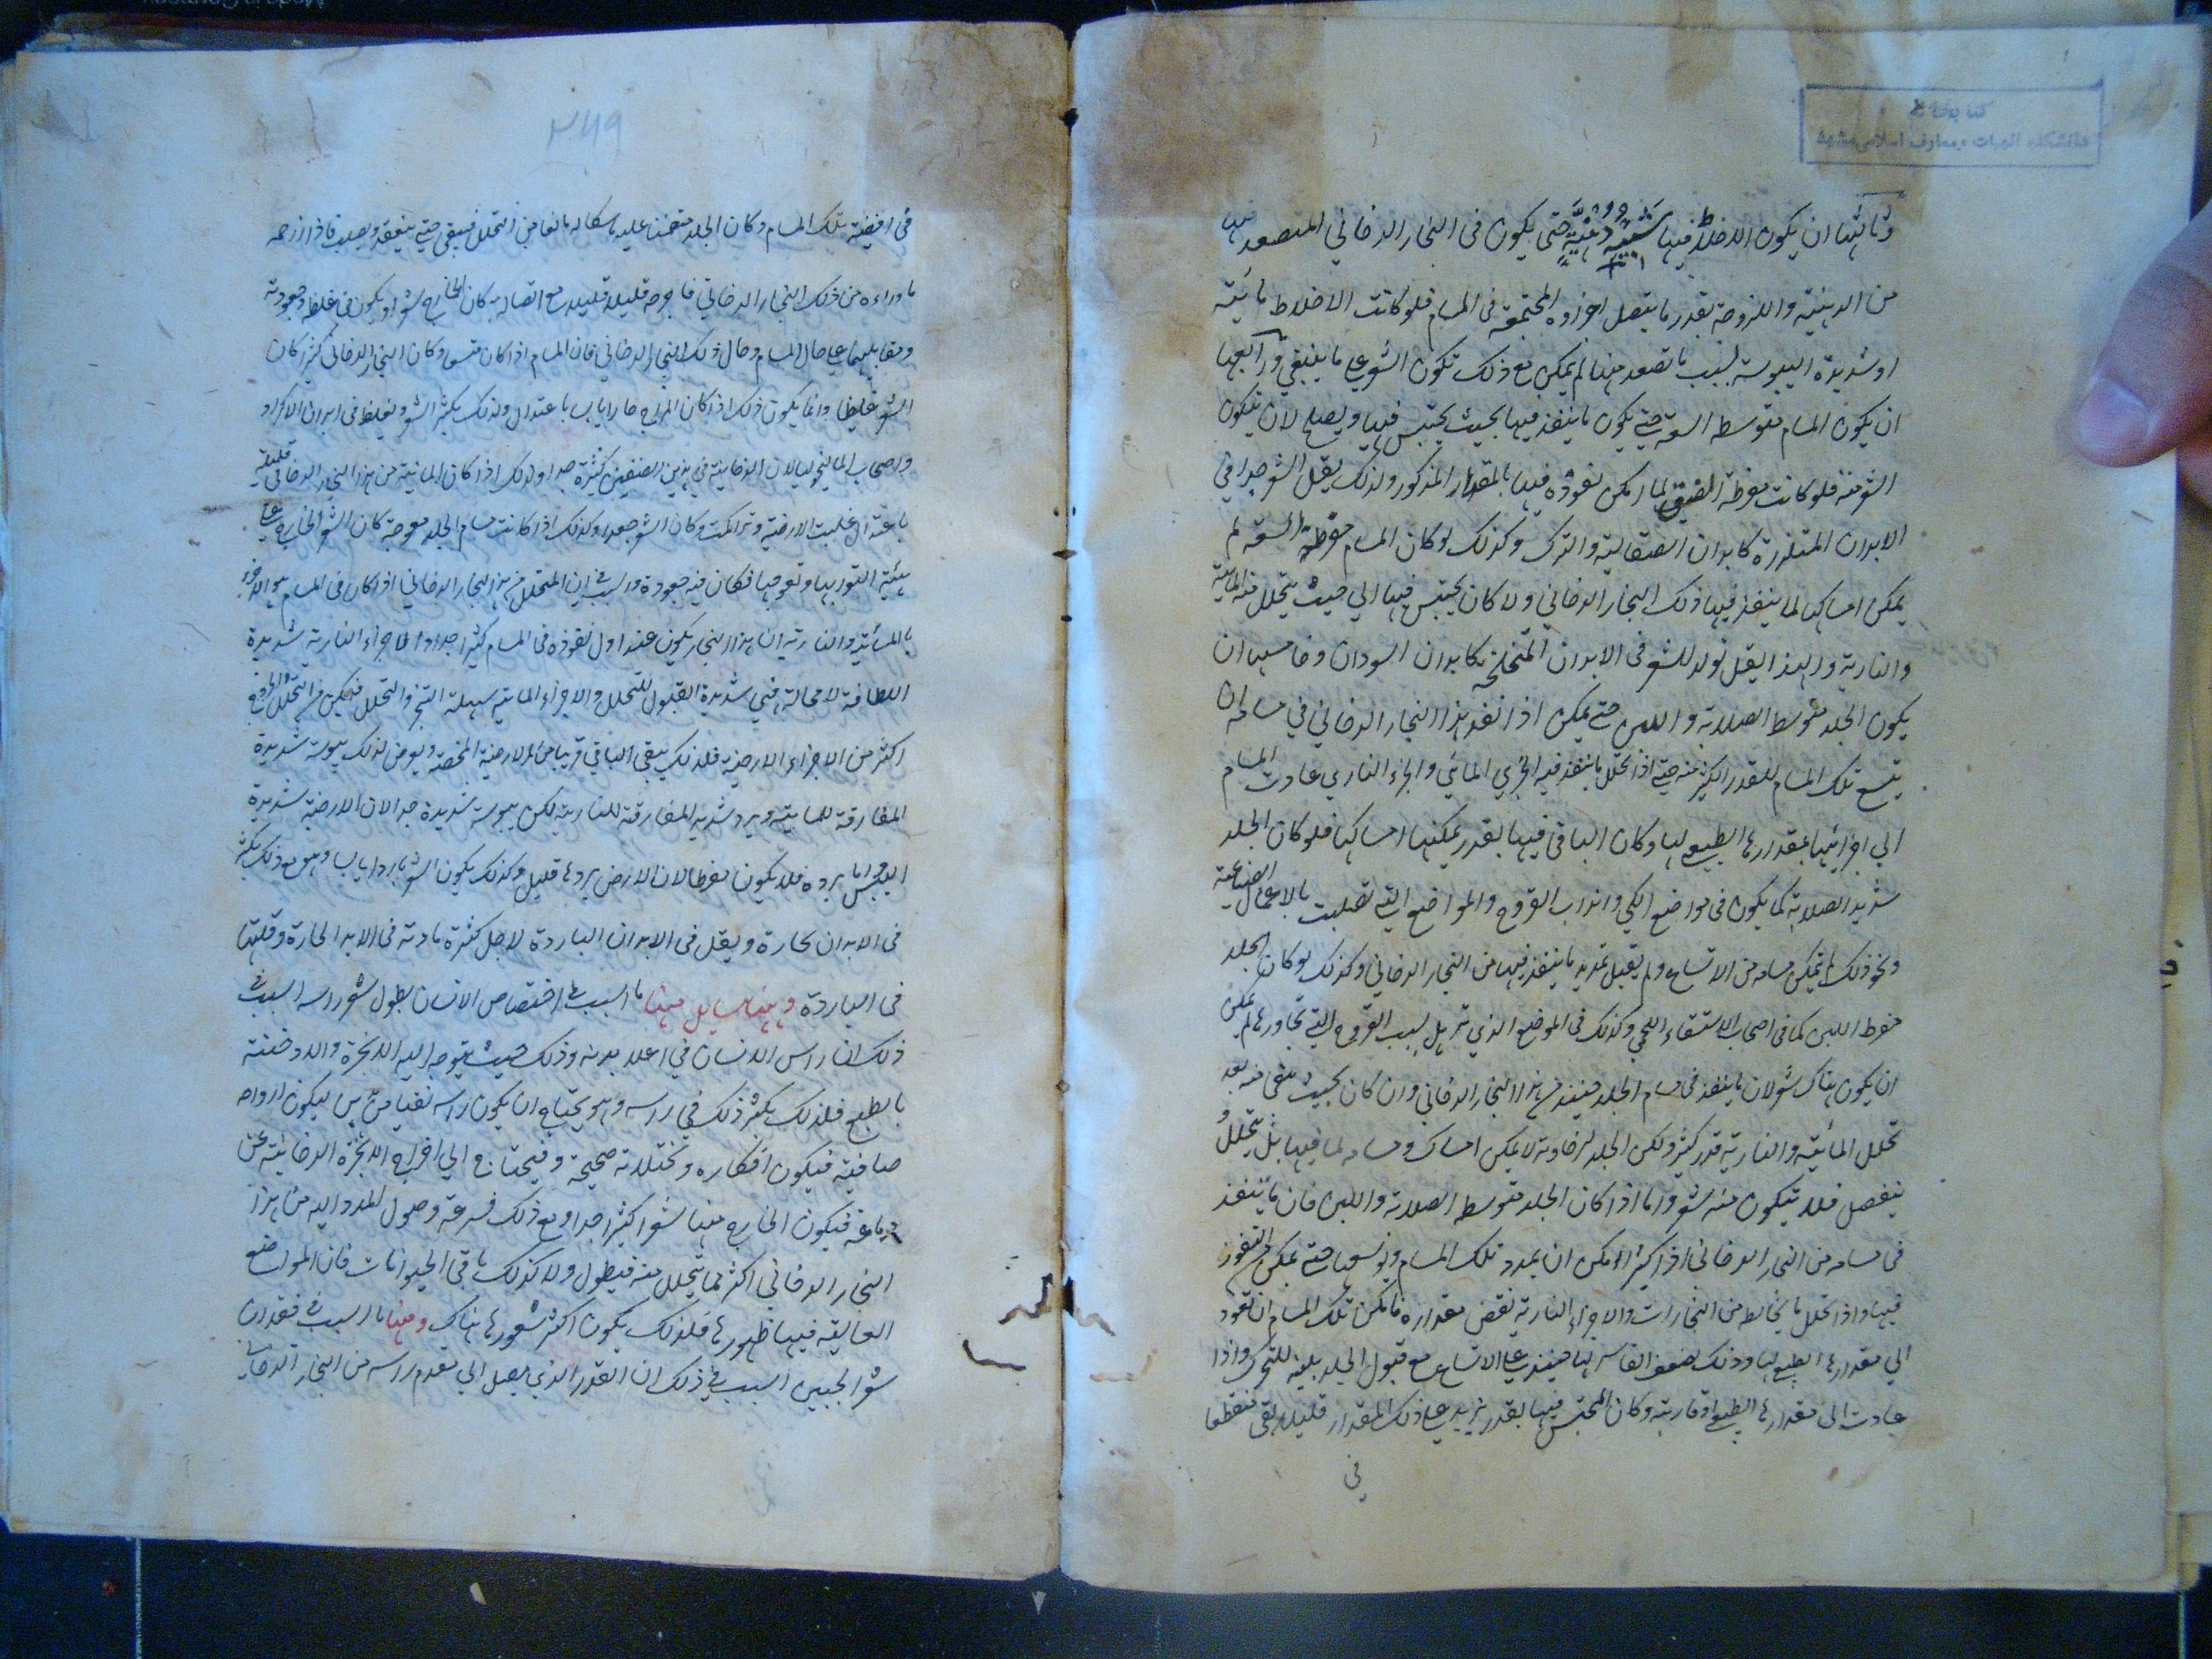 كتابخانه
دانشكده الهيات و معارف اسلامى مشهد
وثالثها ان يكون الاخلاط فيها دهنية حتى يكون فى البخار الدخاني المتصعد فيها
من الدهنية واللزوجة بقدر ما يتصل اجزاوه المجتمعة فى المسام فلو كانت الاخلاط مائية
او شديدة اليبوسة بسبب ما تصعد منها لم يمكن مع ذلك تكون الشعر على ما ينبغي ورابعها
ان يكون المسام متوسط السعة حتى يكون ما ينفذ فيها بحيث يحتبس فيها ويصلح لان يتكون
الشعر منه فلو كانت مفرطة الضيق لما امكن نفوذه فيها بالمقدار المذكور ولذلك يقل الشعر جدا في
الابدان المتلززة كابدان الصقالبة والترك وكذلك لو كان المسام مفرطة السعة لم
يمكن امساكها لما ينفذ فيها ذلك البخار الدخاني ولا كان يحتبس فيها الى حيث يتحلل منه المائية
والنارية ولهذا يقل تولد الشعر فى الابدان المتخلخلة كابدان السودان وخامسها ان
يكون الجلد متوسط الصلابة واللين حتى يمكن اذا نفذ هذا البخار الدخاني في مسامه ان
يتسع تلك المسام للقدر الكثير منه حتى اذا تحلل ما ينفذ فيه الجزء المائي والجزء الناري عادت المسام
الي اجزائها بمقدارها الطبيعي لها وكان الباقي فيها بقدر يمكنها امساكها فلو كان الجلد
شديد الصلابة كما يكون فى مواضع الكي واندمال القروح والمواضع التي تصلبت بالاعمال الصناعية
ونحو ذلك لم يتمكن مسامه من الاتساع ولم يقبل تمديد ما ينفذ فيها من البخار الدخاني وكذلك لو كان الجلد
مفرط اللين كما فى اصحاب الاستسقاء اللحمي وكذلك فى الموضع الذي ترهل بسبب القروح التي تجاوره لم يمكن
ان يكون هناك شعر لان ما ينفذ فى مسام الجلد حينئذ من هذا البخار الدخاني وان كان بحيث يبقى منه بعد
تحلل المائية والنارية قدر كثير ولكن الجلد لرخاوته لا يمكن امساك مسامه لما فيها بل يتحلل و
ينفصل فلا يتكون منه شعر واما اذا كان الجلد متوسط الصلابة واللين فان ما ينفذ
فى مسامه من البخار الدخاني اذا كثر امكن ان يمدد تلك المسام ويوسعها حتى يمكن النفوذ
فيها واذا تحلل ما يخالطه من البخارات والاجزاء النارية نقص مقداره فامكن تلك المسام ان تعود
الي مقدارها الطبيعي لها وذلك لضعف القاسر لها حينئذ على الاتساع مع قبول الجلد بلينه للتحرك واذا
عادت الى مقدارها الطبيعي او قاربته وكان المحتبس فيها بقدر يزيد على ذلك المقدار قليلا بقي منقطعا
في
٣٤٩
فى افضية تلك المسام وكان الجلد منقبضا عليه باشتماله مانعا من التحلل فيبقى حتى ينعقد ويصلب فاذا زحمه
ما وراءه من ذلك البخار الدخاني فاخرجه قليلا قليلا مع اتصاله به كان الخارج شعرا ويكون فى غلظه وجعودته
ومقابليهما على حال المسام وحال ذلك البخار الدخاني فان المسام اذا كان متسعا وكان البخار الدخاني كثيرا كان
الشعر غليظا وانما يكون ذلك اذا كان المزاج حارا يابسا باعتدال ولذلك يكثر الشعر ويغلظ فى ابدان الاكراد
واصحاب الماليخوليا لان الدخانية في هذين الصنفين كثيرة جدا وكذلك اذا كان المائية من هذا البخار الدخاني قليلة
باعتدال غلبت الارضية وتراكمت وكان الشعر جعدا وكذلك اذا كانت مسام الجلد معوجة كان الشعر الخارج على
هيئة التوائها وتعوجها فكان فيه جعودة والسبب في ان المتحلل من هذا البخار الدخاني اذا كان فى المسام هو الاجزاء
المائية والنارية ان هذا البخار يكون عند اول نفوذه فى المسام كثيرا جدا والاجزاء النارية شديدة
اللطافة لا محالة فهي شديدة القبول للتحلل والاجزاء المائية سهلة التبخر والتحلل فيكون من التحلل والخروج
اكثر من الاجزاء الارضية فلذلك يبقى الباقي قريبا من الارضية المحضة ويعرض لذلك يبوسة شديدة
المفارقة للمائية وبرد شديد المفارقة للنارية لكن يبوسة شديدة جدا لان الارضية شديدة
اليبس واما برده فلا يكون مفرطا لان الارض بردها قليل وكذلك يكون الشعر باردا يابسا وهو مع ذلك يكثر
فى الابدان الحارة ويقل فى الابدان الباردة لاجل كثرة مادته فى الابدان الحارة وقلتها
فى الباردة وههنا مسايل منها ما السبب في اختصاص الانسان بطول شعر راسه السبب في
ذلك ان راس الانسان في اعلا بدنه وذلك حيث يتوجه اليه الابخرة والادخنة
بالطبع فلذلك يكثر ذلك في راسه وهو يحتاج ان يكون راسه نقيا من هذين ليكون ارواحه
صافية فيكون افكاره وتخيلاته صحيحة فيحتاج الي اخراج الابخرة الدخانية عن
دماغه فيكون الخارج منها شعرا كثيرا جدا ومع ذلك فسرعة وصول المدد اليه من هذا
البخار الدخاني اكثر مما يتحلل منه فيطول ولا كذلك باقى الحيوانات فان المواضع
العالية فيها ظهورها فلذلك يكون اكثر شعورها هناك ومنها ما السبب في فقدان
شعر الجبين السبب في ذلك ان القدر الذي يصل الي مقدم راسه من البخار الدخاني